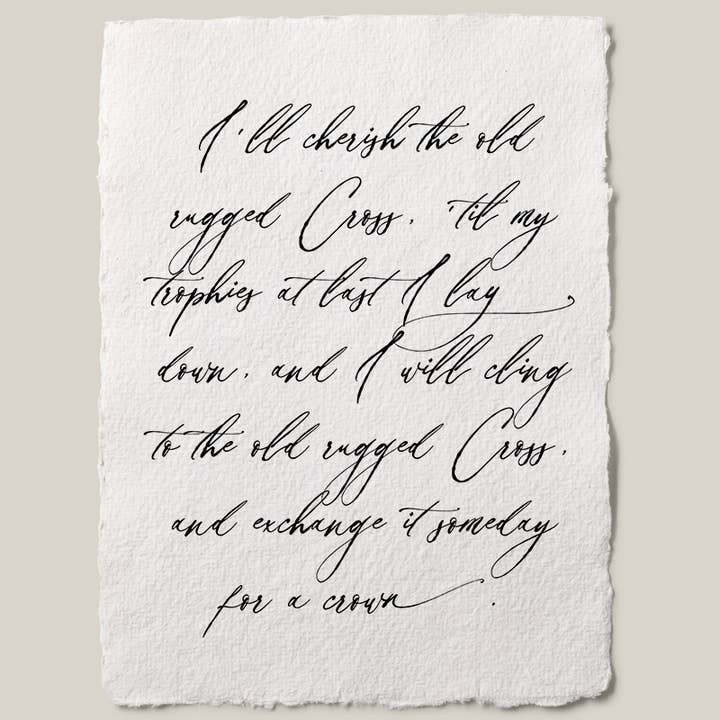 I'll cherish the old
rugged Cross, 'til my
trophies at last I lay
down, and I will cling
to the old rugged Cross,
and exchange it someday
for a crown.